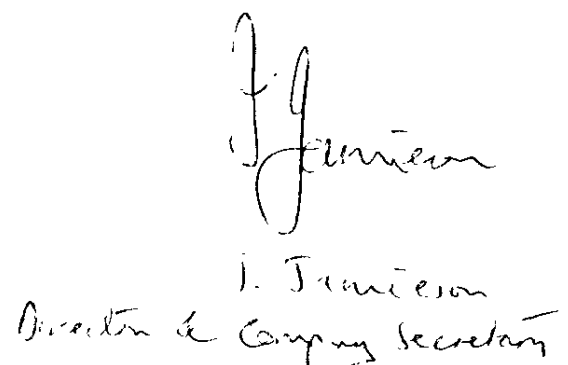 I. Jamieson
I. Jamieson
Director & Company Secretary